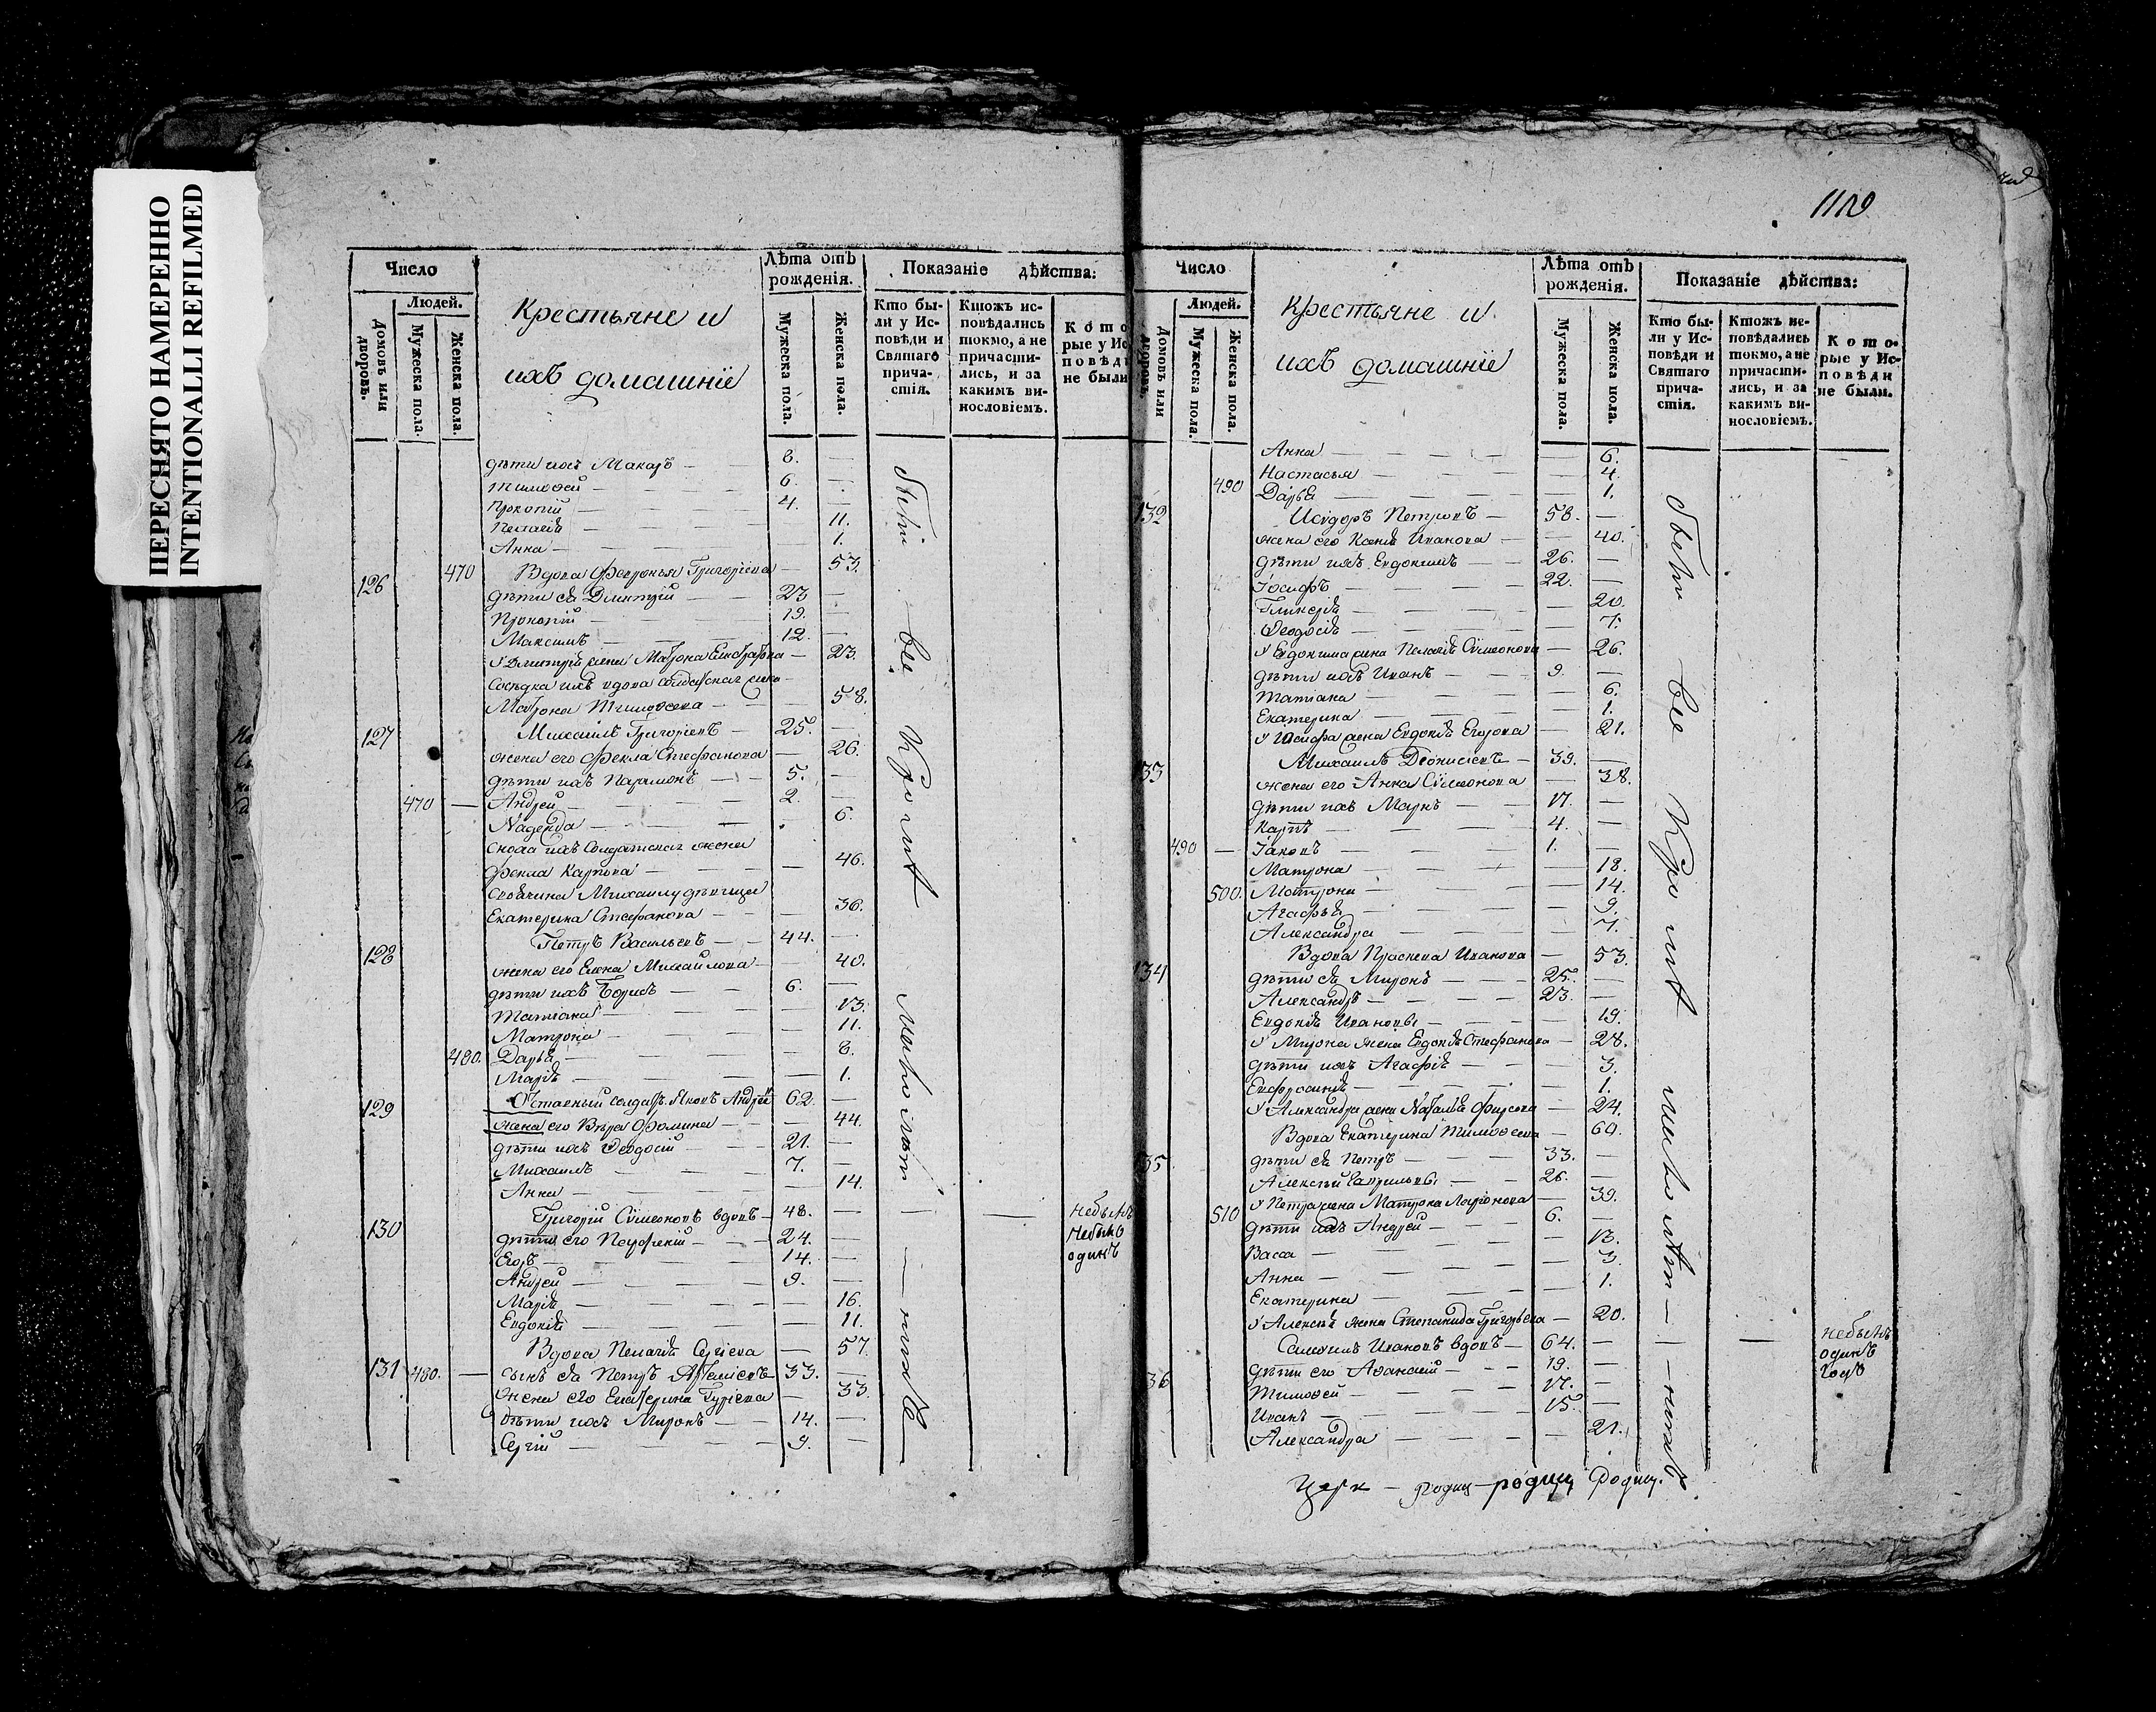 ПЕРЕСНЯТО НАМЕРЕННО
INTENTIONALLI REFILMED
Число
Людей.
Домовъ или дворовъ.
Мужеска пола.
Женска пола.
Крестьяне и
ихъ домашніе
Лѣта отъ рожденія.
Мужеска пола.
Женска пола.
Показаніе дѣйства:
Кто бы-
ли у Ис-
повѣди и
Святаго
прича-
стія.
Ктожъ ис-
повѣдались
токмо, а не
причасти-
лись, и за
какимъ ви-
нословіемъ.
Кото
рые у Ис
повѣд
не были
дѣти ихъ Макаръ — 8.
Тимоѳей — 6.
Прокопій — 4.
Пелагія — 11.
Анна — 1.
126 470 Вдова Ѳевронья Григорьева — 53.
дѣти ея Димитрій — 23
Прокопій — 19.
Максимъ — 12.
У Димитрія жена Матрона — 23.
Сосѣдка ихъ вдова солдатская жена
Матрона Тимоѳеева — 58.
127 Михаилъ Григорьевъ — 25.
жена его Ѳекла Стефанова — 26.
дѣти ихъ Парамонъ — 5.
470 — Андрей — 2.
Надежда — 6.
Сноха ихъ Солдатская жена
Ѳекла Карпова — 46.
Михаилу дѣвица
Екатерина Стефанова — 36.
128 Петръ Васильевъ — 44.
жена его Елена Михайлова — 40.
дѣти ихъ Борисъ — 6.
Татіана — 13.
Матрона — 11.
480. Дарья — 8.
Марія — 1.
129 Отставный солдатъ Яковъ Андрей 62.
жена его Вѣра Ѳомина — 44.
дѣти ихъ Ѳеодосій — 21.
Михаилъ — 7.
Анна — 14.
130 Григорій Сѵмеоновъ вдовъ — 48.
дѣти его Парѳеній — 24.
Егоръ — 14.
Андрей — 9.
Марія — 16.
Евдокія — 11.
Вдова Пелагія Сергіева — 57.
131 480. — сынъ ея Петръ — 33.
Жена его Екатерина Гуріева — 33.
дѣти ихъ Миронъ — 14.
Сергій — 9.
небылъ
одинъ
1112
Число
Людей.
Домовъ или дворовъ.
Мужеска пола.
Женска пола.
Крестьяне и
ихъ домашніе
Лѣта отъ рожденія.
Мужеска пола.
Женска пола.
Показаніе дѣйства:
Кто бы-
ли у Ис-
повѣди и
Святаго
прича-
стія.
Ктожъ ис-
повѣдались
токмо, а не
причасти-
лись, и за
какимъ ви-
нословіемъ.
Кото-
рые у Ис-
повѣди
не были.
Анна — 6.
Настасья — 4.
490 Дарья — 1.
132 Исидоръ Петровъ — 58.
жена его Ксенія Иванова — 40.
дѣти ихъ Евдокимъ — 26.
Іосифъ — 22.
Гликерія — 20.
Ѳеодосія — 7.
У Евдокима жена Пелагія Сѵмеонова — 26.
дѣти ихъ Иванъ — 9.
Татіана — 6.
Екатерина — 1.
У Іосифа жена Евдокія Егорова — 21.
133 Михаилъ Діонисіевъ — 39.
жена его Анна Сѵмеонова — 38.
дѣти ихъ Маркъ — 17.
Карпъ — 4.
490 — Іаковъ — 1.
Матрона — 18.
500. Матрона — 14.
Агафья — 9.
Александра — 7.
134 Вдова Праскева Иванова — 53.
дѣти ея Миронъ — 25.
Александръ — 23.
Евдокія — 19.
У Мирона жена Евдокія Стефанова — 28.
дѣти ихъ Агафія — 3.
Евфросинія — 1.
У Александра жена Наталья Фирсова — 24.
135 Вдова Екатерина Тимоѳеева — 60.
дѣти ея Петръ — 33.
Алексѣй — 26.
510 У Петра жена Матрона Ларіонова — 39.
дѣти ихъ Андрей — 6.
Васса — 13.
Анна — 3.
Екатерина — 1.
У Алексѣя жена Степанида Григорьева — 20.
136 Самоилъ Ивановъ вдовъ — 64.
дѣти его Аѳанасій — 19.
Тимоѳей — 17.
Иванъ — 15.
Александра — 21.
небылъ
одинъ
годъ